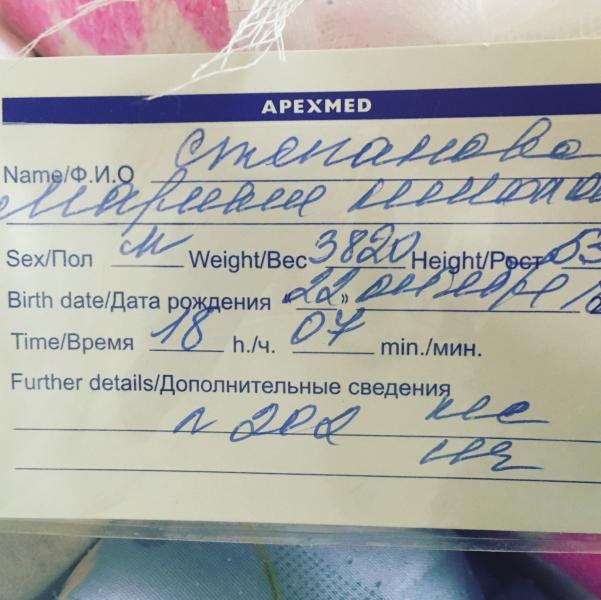 APEXMED
Name/Ф.И.О Степанова
Sex/Пол м Weight/Вес 3820 Height/Рост 53
Birth date/Дата рождения «22» октября
Time/Время 18 h./ч. 07 min./мин.
Further details/Дополнительные сведения
202